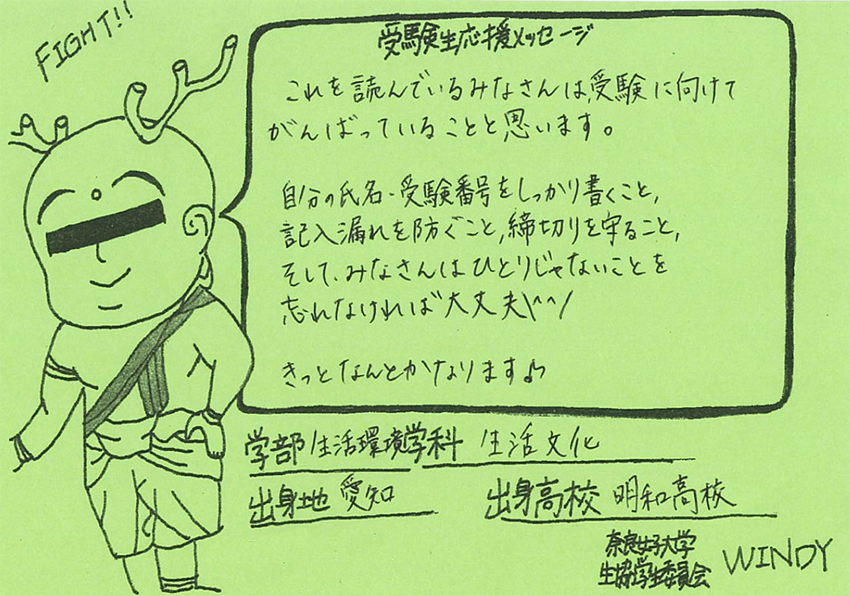 FIGHT!!
受験生応援メッセージ
これを読んでいるみなさんは、受験に向けて
がんばっていることと思います。
自分の氏名・受験番号をしっかり書くこと,
記入漏れを防ぐこと,締切りを守ること,
そして、みなさんはひとりじゃないことを
忘れなければ大丈夫\^^/
きっとなんとかなります♪
学部 生活環境 学科 生活文化
出身地 愛知 出身高校 明和高校
奈良女子大学
生協学生委員会 WINDY